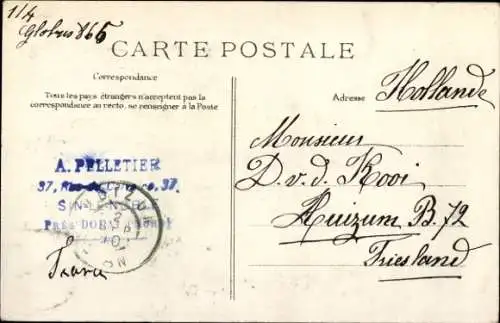 1/4
Globus 865
CARTE POSTALE
Correspondance
Tous les pays étrangers n'acceptent pas la
correspondance au recto, se renseigner à la Poste
Adresse
Hollande
Monsieur
D. v. d. Kooi
Huizum B. 72
Friesland
A. PELLETIER
37, Rue de 37
SIN
PRÈS DORA
HUIZUM